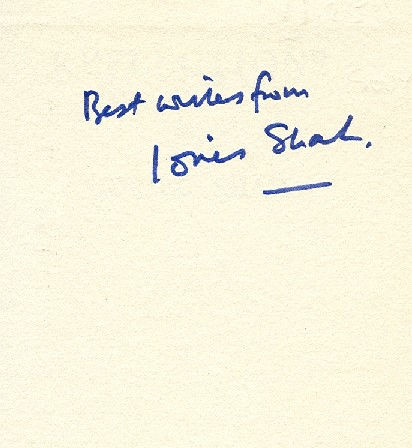 Best wishes from
Idries Shah.